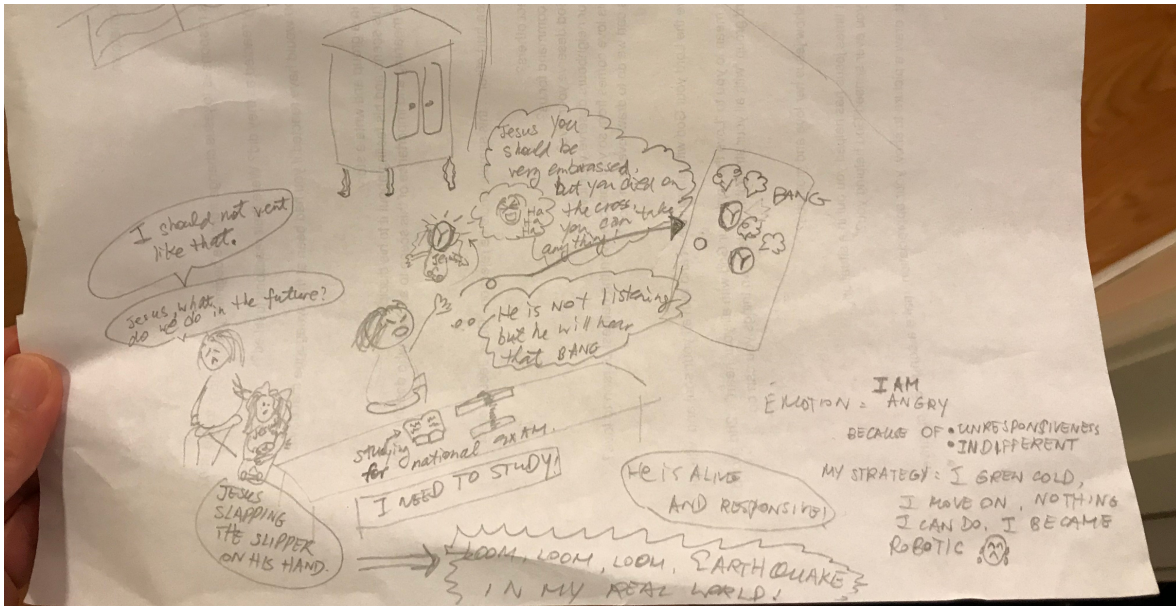 I should not vent
like that.
Jesus, what
do we do in the future?
Jesus you
should be
very embrassed,
but you died on
the cross, you can take
anything!
Ha
Ha
Ha
BANG
He is NOT listening
but he will hear
that BANG
studying
for national EXAM.
I NEED TO STUDY
JESUS
SLAPPING
THE SLIPPER
ON HIS HAND.
He is ALIVE
AND RESPONSIVE!
LOOM, LOOM, LOOM, EARTHQUAKE
IN MY REAL WORLD!
I AM
EMOTION = ANGRY
BECAUSE OF • UNRESPONSIVENESS
• INDIFFERENT
MY STRATEGY: I GREN COLD,
I MOVE ON, NOTHING
I CAN DO, I BECAME
ROBOTIC